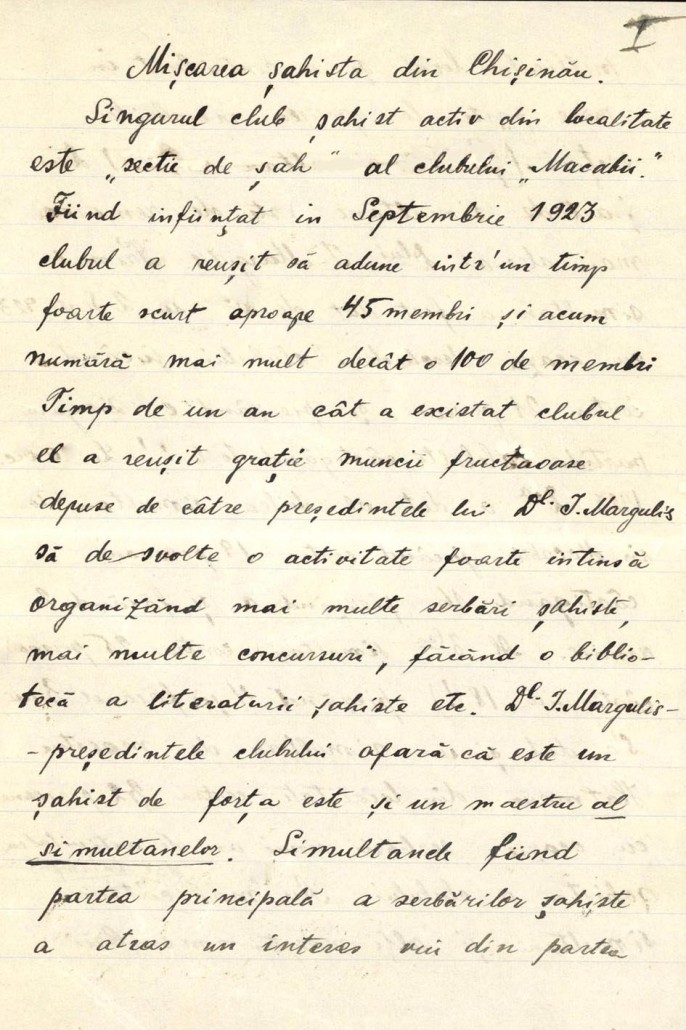 I
Mișcarea șahista din Chișinău.
Singurul club șahist activ din localitate
este „sectie de șah” al clubului „Macabii.”
Fiind inființat in Septembrie 1923
clubul a reușit să adune intr'un timp
foarte scurt aproape 45 membri și acum
numără mai mult decât o 100 de membri
Timp de un an cât a existat clubul
el a reușit grație muncii fructuoase
depuse de câtre președintele lui Dl. I. Margulis
să desvolte o activitate foarte intinsă
organizând mai multe serbări șahiste,
mai multe concursuri, făcând o biblio-
tecă a literaturii șahiste etc. Dl. I. Margulis-
-președintele clubului afară că este un
șahist de forța este și un maestru al
simultanelor. Simultanele fiind
partea principală a serbărilor șahiste
a atras un interes viu din partea